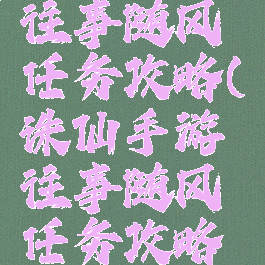 往事随风
任务攻略(
诛仙手游
往事随风
任务攻略